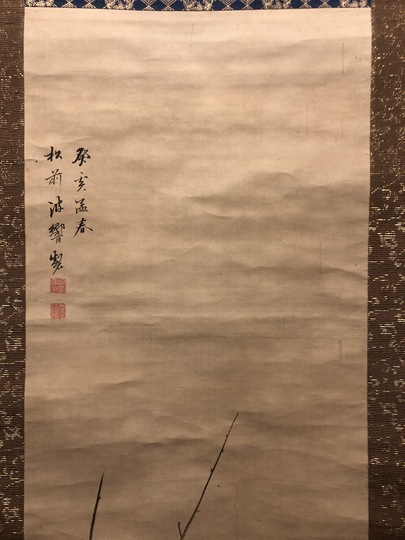 癸亥孟春
松前波響製